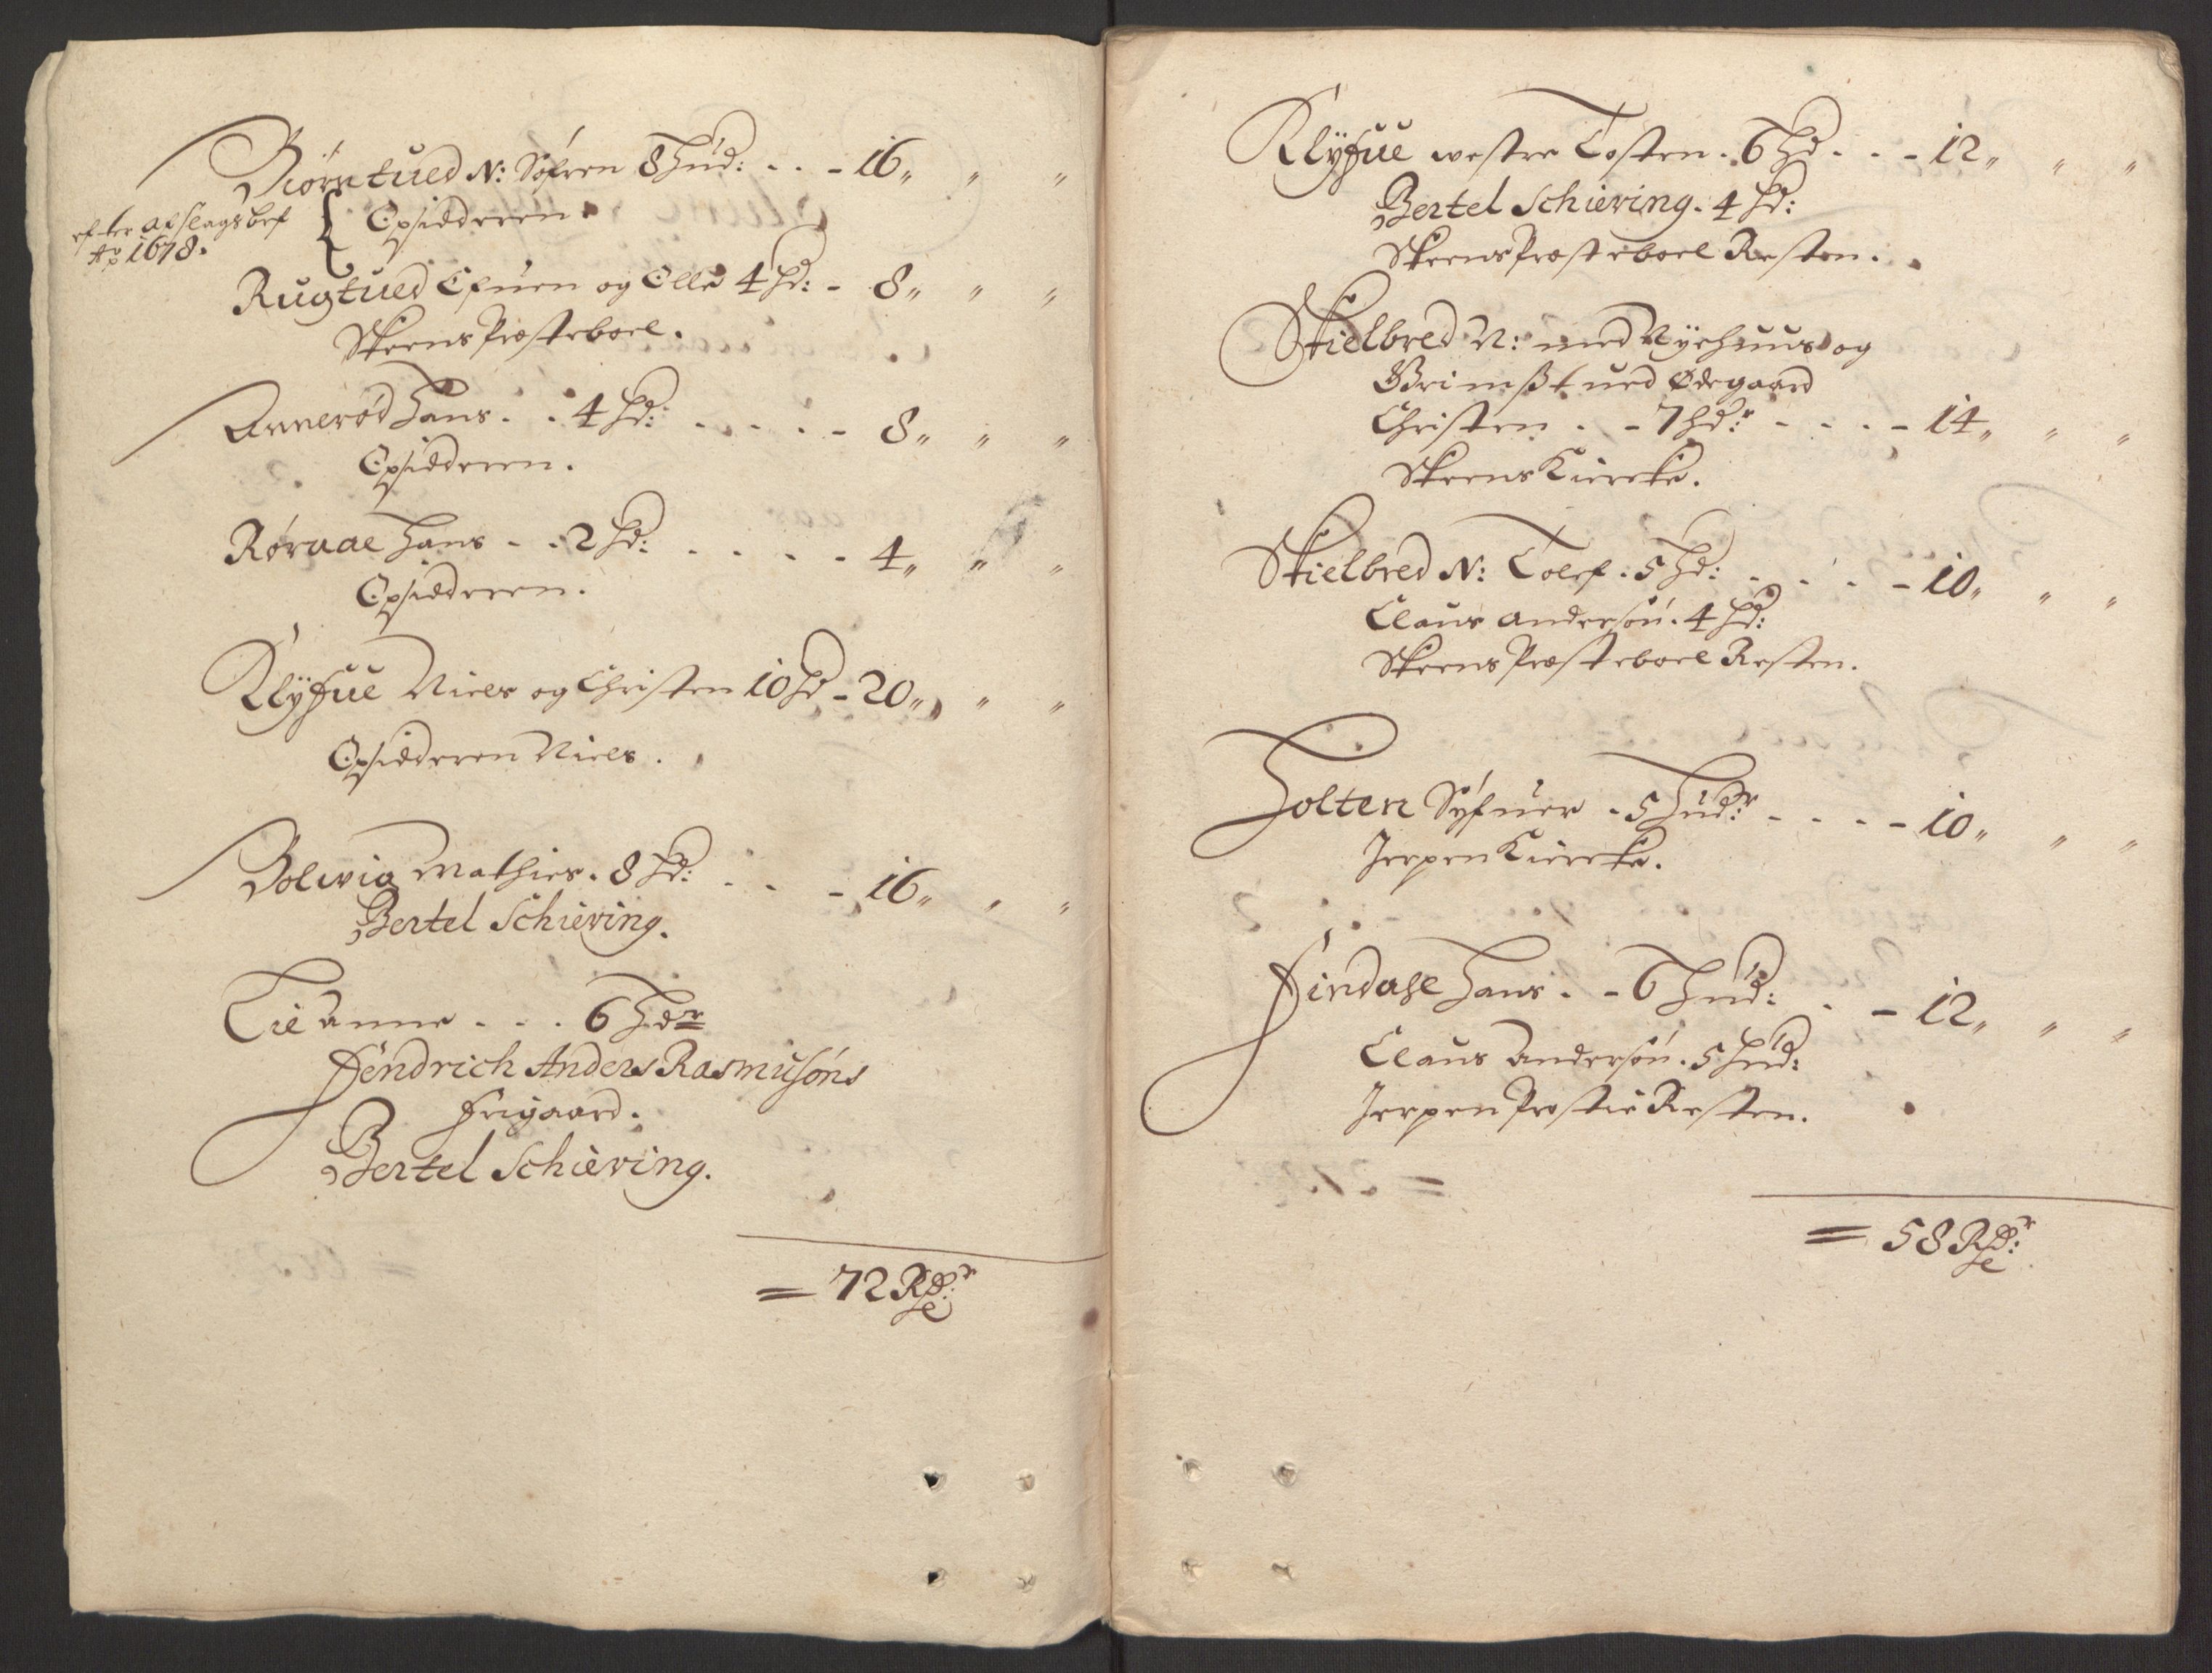 Biørntued N: Søfren 8 Hud: . . - 16 „ „ „
efter afslags bef
Aō 1678.
Opsidderen.
Rugtued Efuen og Olle 4 hd: - 8 „ „ „
Skeens Præsteboel.
Annerød Hans . . 4 hd: . . . . - 8 „ „ „
Opsidderen.
Røraae Hans - . 2 hd: . . . . - 4 „ „ „
Opsidderen.
Klyfue Niels og Christen 10 hd - 20 „ „ „
Opsidderen Niels.
Bolwig Mathies. 8 hd: . . - 16 „ „ „
Bertel Schiering.
Lie Anne . . . 6 Hdr
Hendrich Anders Rasmusøns
frigaard.
Bertel Schiering.
= 72 Rdr
Klyfue westre Tosten. 6 Hd . . - 12 „ „ „
Bertel Schiering. 4 hd:
Skeens Præsteboel Resten.
Skielbred N: med Nyehuus og
Grimßtued Ødegaard
Christen . . - 7 hdr . . . - 14 „ „ „
Skeens Kiercke.
Skielbred N: Tolef . 5 Hd: . . . - 10 „ „ „
Claus Andersøn. 4 hd:
Skeens Præsteboel Resten.
Holten Syfuer - 5 Hudr - . . - 10 „ „ „
Jerpen Kiercke.
Findahl Hans . - 6 Hud: . - 12 „ „ „
Claus Andersøn. 5 Hud:
Jerpen Præstie Resten.
= 58 Rdr